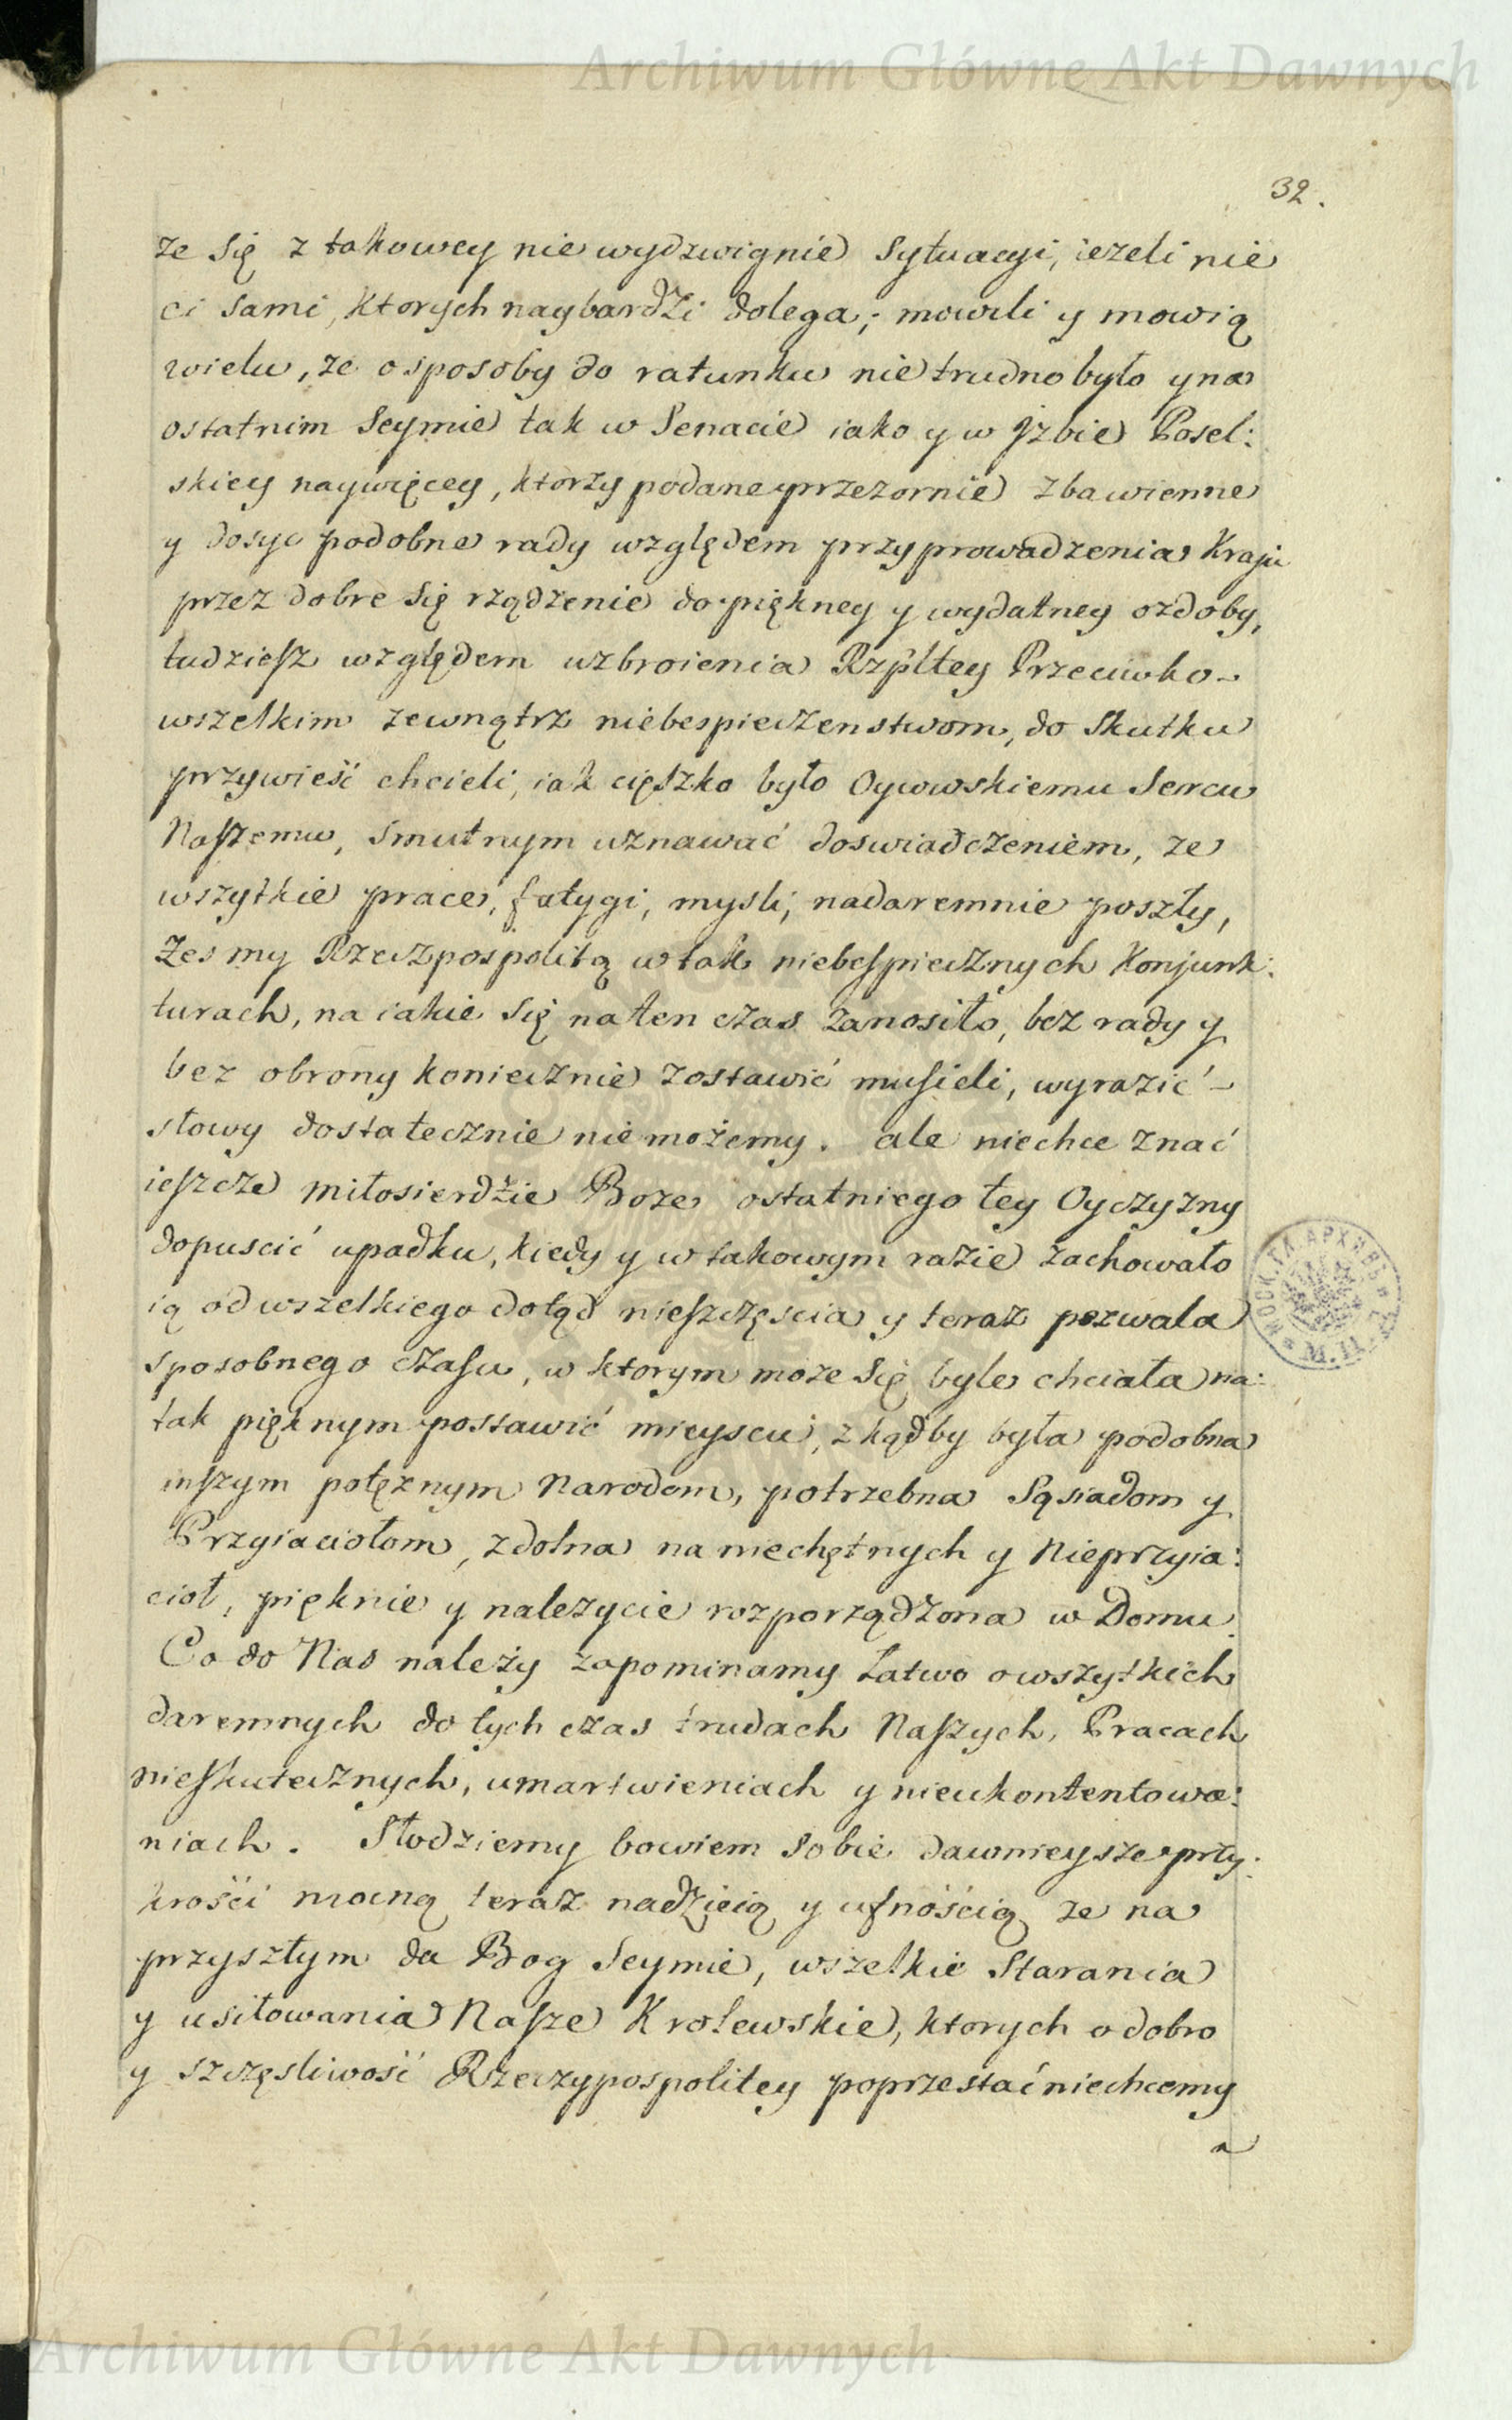 Archiwum Główne Akt Dawnych
32.
ze się z takowey nie wydzwignie sytuacyi, iezeli nie
ci sami, ktorych naybardzi dolega; mowili y mowią
wielu, ze o sposoby do ratunku nie trudno było y na
ostatnim Seymie tak w Senacie iako y w Jzbie Posel:
skiey naywięcey, ktorzy podane przezornie zbawienne
y dosyc podobne rady względem przyprowadzenia Kraju
przez dobre się rządzenie do piękney y wydatney ozdoby,
tudziesz względem uzbroienia Rzpltey Przeciwko
wszelkim zewnątrz niebespieczenstwom, do skutku
przywieść chcieli, iak cięszko było Oycowskiemu Sercu
Naszemu, smutnym uznawać doswiadczeniem, ze
wszytkie prace, fatygi, mysli, nadaremnie poszły,
Zesmy Rzeczpospolitą w tak niebespiecznych Konjunk:
turach, na iakie się na ten czas zanosiło, bez rady y
bez obrony koniecznie zostawić musieli, wyrazić
słowy dostatecznie nie możemy. ale niechce znać
ieszcze miłosierdzie Boze ostatniego tey Oyczyzny
dopuscić upadku, kiedy y w takowym razie zachowało
ią od wszelkiego dotąd nieszczęscia y teraz pozwala
sposobnego czasu, w ktorym moze się byle chciała na:
tak pięknym postawić mieyscu, zkądby była podobna
inszym potęznym Narodom, potrzebna Sąsiadom y
Przyiaciołom, zdolna na niechętnych y Nieprzyia:
cioł, pięknie y nalezycie rozporządzona w Domu.
Co do Nas należy zapominamy łatwo o wszytkich
daremnych do tych czas trudach Naszych, Pracach
nieskutecznych, umartwieniach y nieukontentowa:
niach. Słodziemy bowiem sobie dawnieysze przy:
krości mocną teraz nadzieią y ufnością ze na
przyszłym da Bog Seymie, wszelkie Starania
y usiłowania Nasze Krolewskie, ktorych o dobro
y szczęsliwość Rzeczypospolitey poprzestać niechcemy
a
МОСК. ГЛ. АРХИВЪ
Archiwum Główne Akt Dawnych